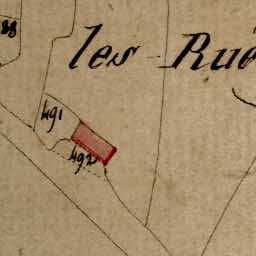 88
les Rué
491
492